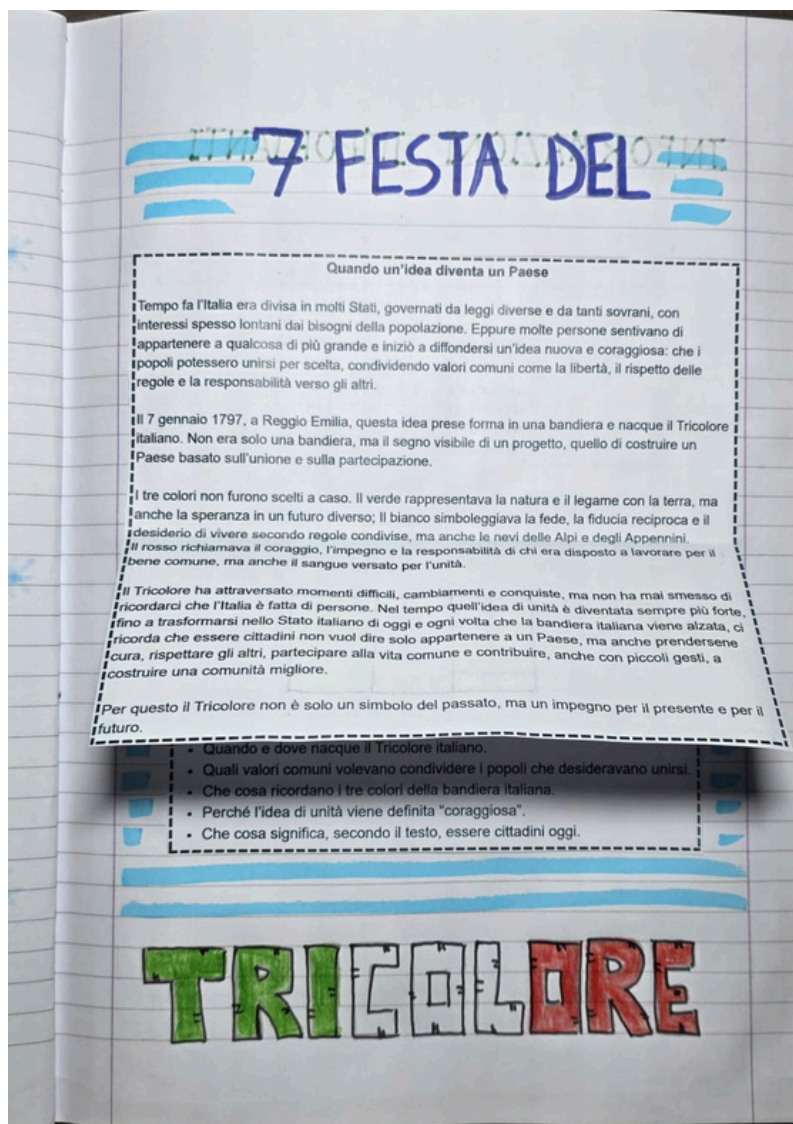 7 FESTA DEL
Quando un'idea diventa un Paese
Tempo fa l'Italia era divisa in molti Stati, governati da leggi diverse e da tanti sovrani, con
interessi spesso lontani dai bisogni della popolazione. Eppure molte persone sentivano di
appartenere a qualcosa di più grande e iniziò a diffondersi un'idea nuova e coraggiosa: che i
popoli potessero unirsi per scelta, condividendo valori comuni come la libertà, il rispetto delle
regole e la responsabilità verso gli altri.
Il 7 gennaio 1797, a Reggio Emilia, questa idea prese forma in una bandiera e nacque il Tricolore
italiano. Non era solo una bandiera, ma il segno visibile di un progetto, quello di costruire un
Paese basato sull'unione e sulla partecipazione.
I tre colori non furono scelti a caso. Il verde rappresentava la natura e il legame con la terra, ma
anche la speranza in un futuro diverso; Il bianco simboleggiava la fede, la fiducia reciproca e il
desiderio di vivere secondo regole condivise, ma anche le nevi delle Alpi e degli Appennini.
Il rosso richiamava il coraggio, l'impegno e la responsabilità di chi era disposto a lavorare per il
bene comune, ma anche il sangue versato per l'unità.
Il Tricolore ha attraversato momenti difficili, cambiamenti e conquiste, ma non ha mai smesso di
ricordarci che l'Italia è fatta di persone. Nel tempo quell'idea di unità è diventata sempre più forte,
fino a trasformarsi nello Stato italiano di oggi e ogni volta che la bandiera italiana viene alzata, ci
ricorda che essere cittadini non vuol dire solo appartenere a un Paese, ma anche prendersene
cura, rispettare gli altri, partecipare alla vita comune e contribuire, anche con piccoli gesti, a
costruire una comunità migliore.
Per questo il Tricolore non è solo un simbolo del passato, ma un impegno per il presente e per il
futuro.
• Quando e dove nacque il Tricolore italiano.
• Quali valori comuni volevano condividere i popoli che desideravano unirsi.
• Che cosa ricordano i tre colori della bandiera italiana.
• Perché l'idea di unità viene definita "coraggiosa".
• Che cosa significa, secondo il testo, essere cittadini oggi.
TRICOLORE